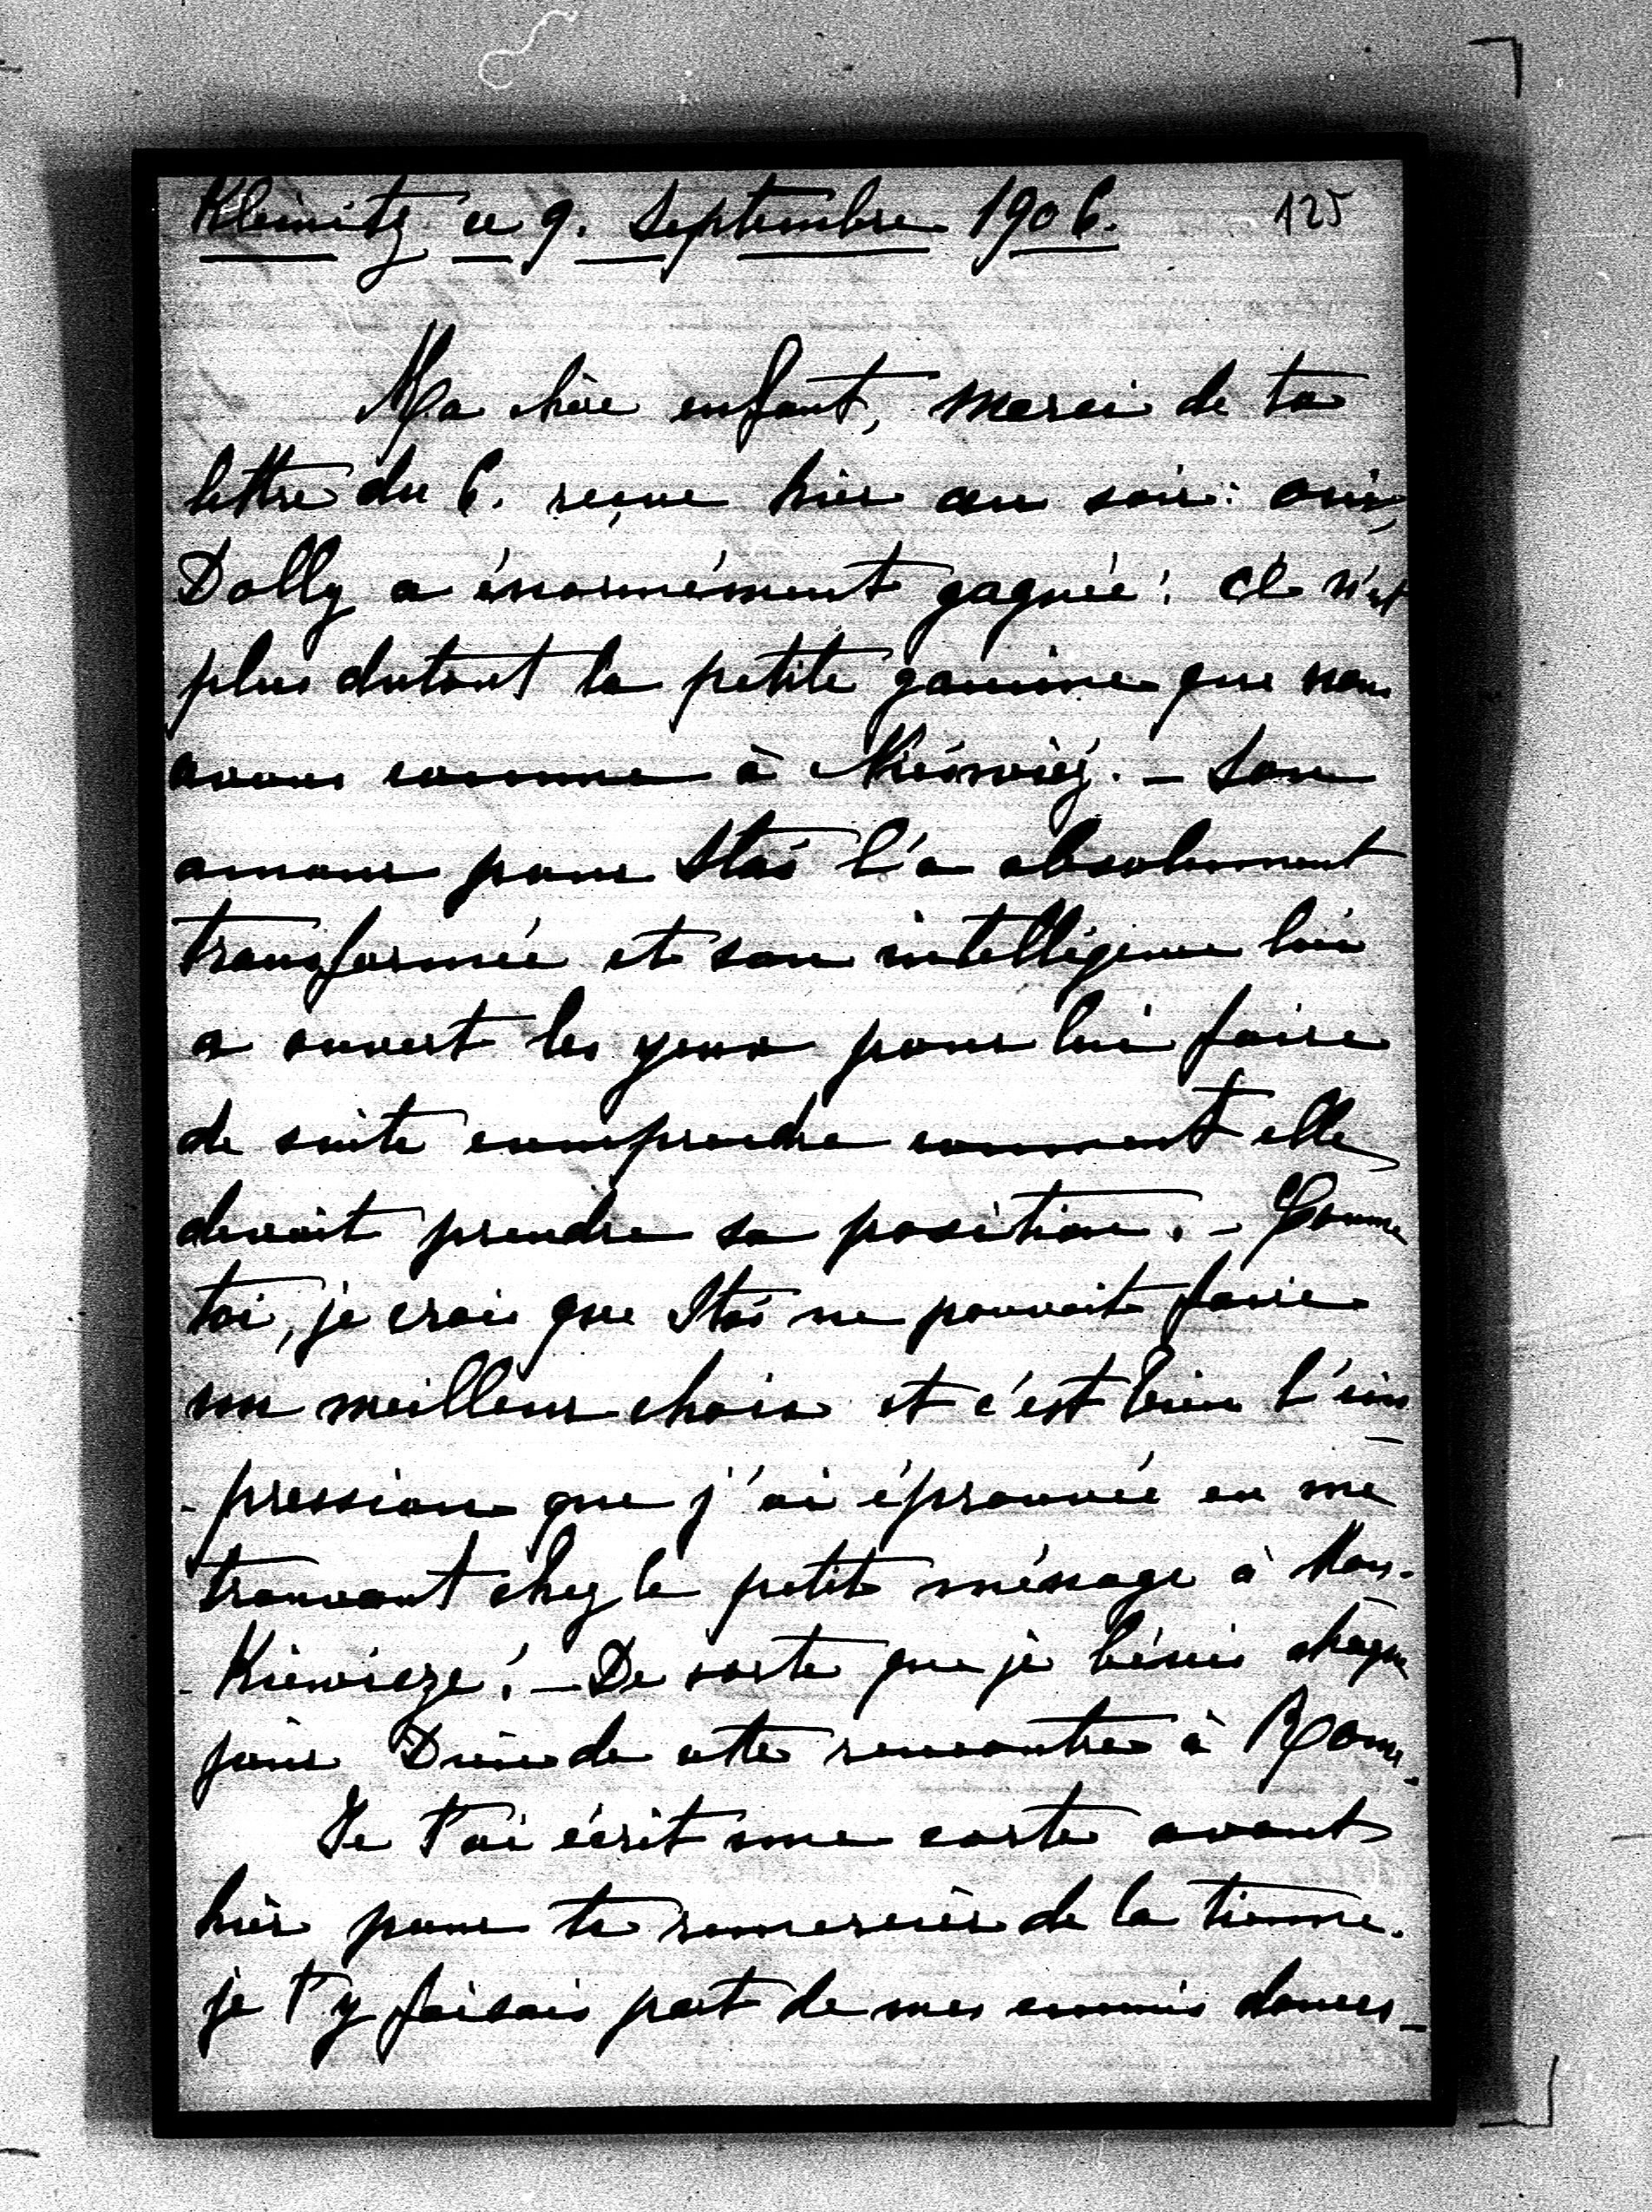 Kleinitz ce 9. Septembre 1906. 125
Ma chère enfant, merci de ta
lettre du 6. reçue hier au soir: oui,
Dolly a énormément gagnée! Ce n'est
plus dutout la petite gamine que nous
avons connue à Nieśwież. – Son
amour pour Staś l'a absolument
transformée et son intelligence lui
a ouvert les yeux pour lui faire
de suite comprendre comment elle
devait prendre sa position. – Comme
toi, je crois que Staś ne pouvait faire
un meilleur choix et c'est bien l'im-
-pression que j'ai éprouvée en me
trouvant chez le petit ménage à Man-
-Kiewicze! – De sorte que je bénis chaque
jour Dieu de cette rencontre à Rome.
Je t'ai écrit une carte avant
hier pour te remercier de la tienne.
je t'y faisais part de mes ennuis domes-